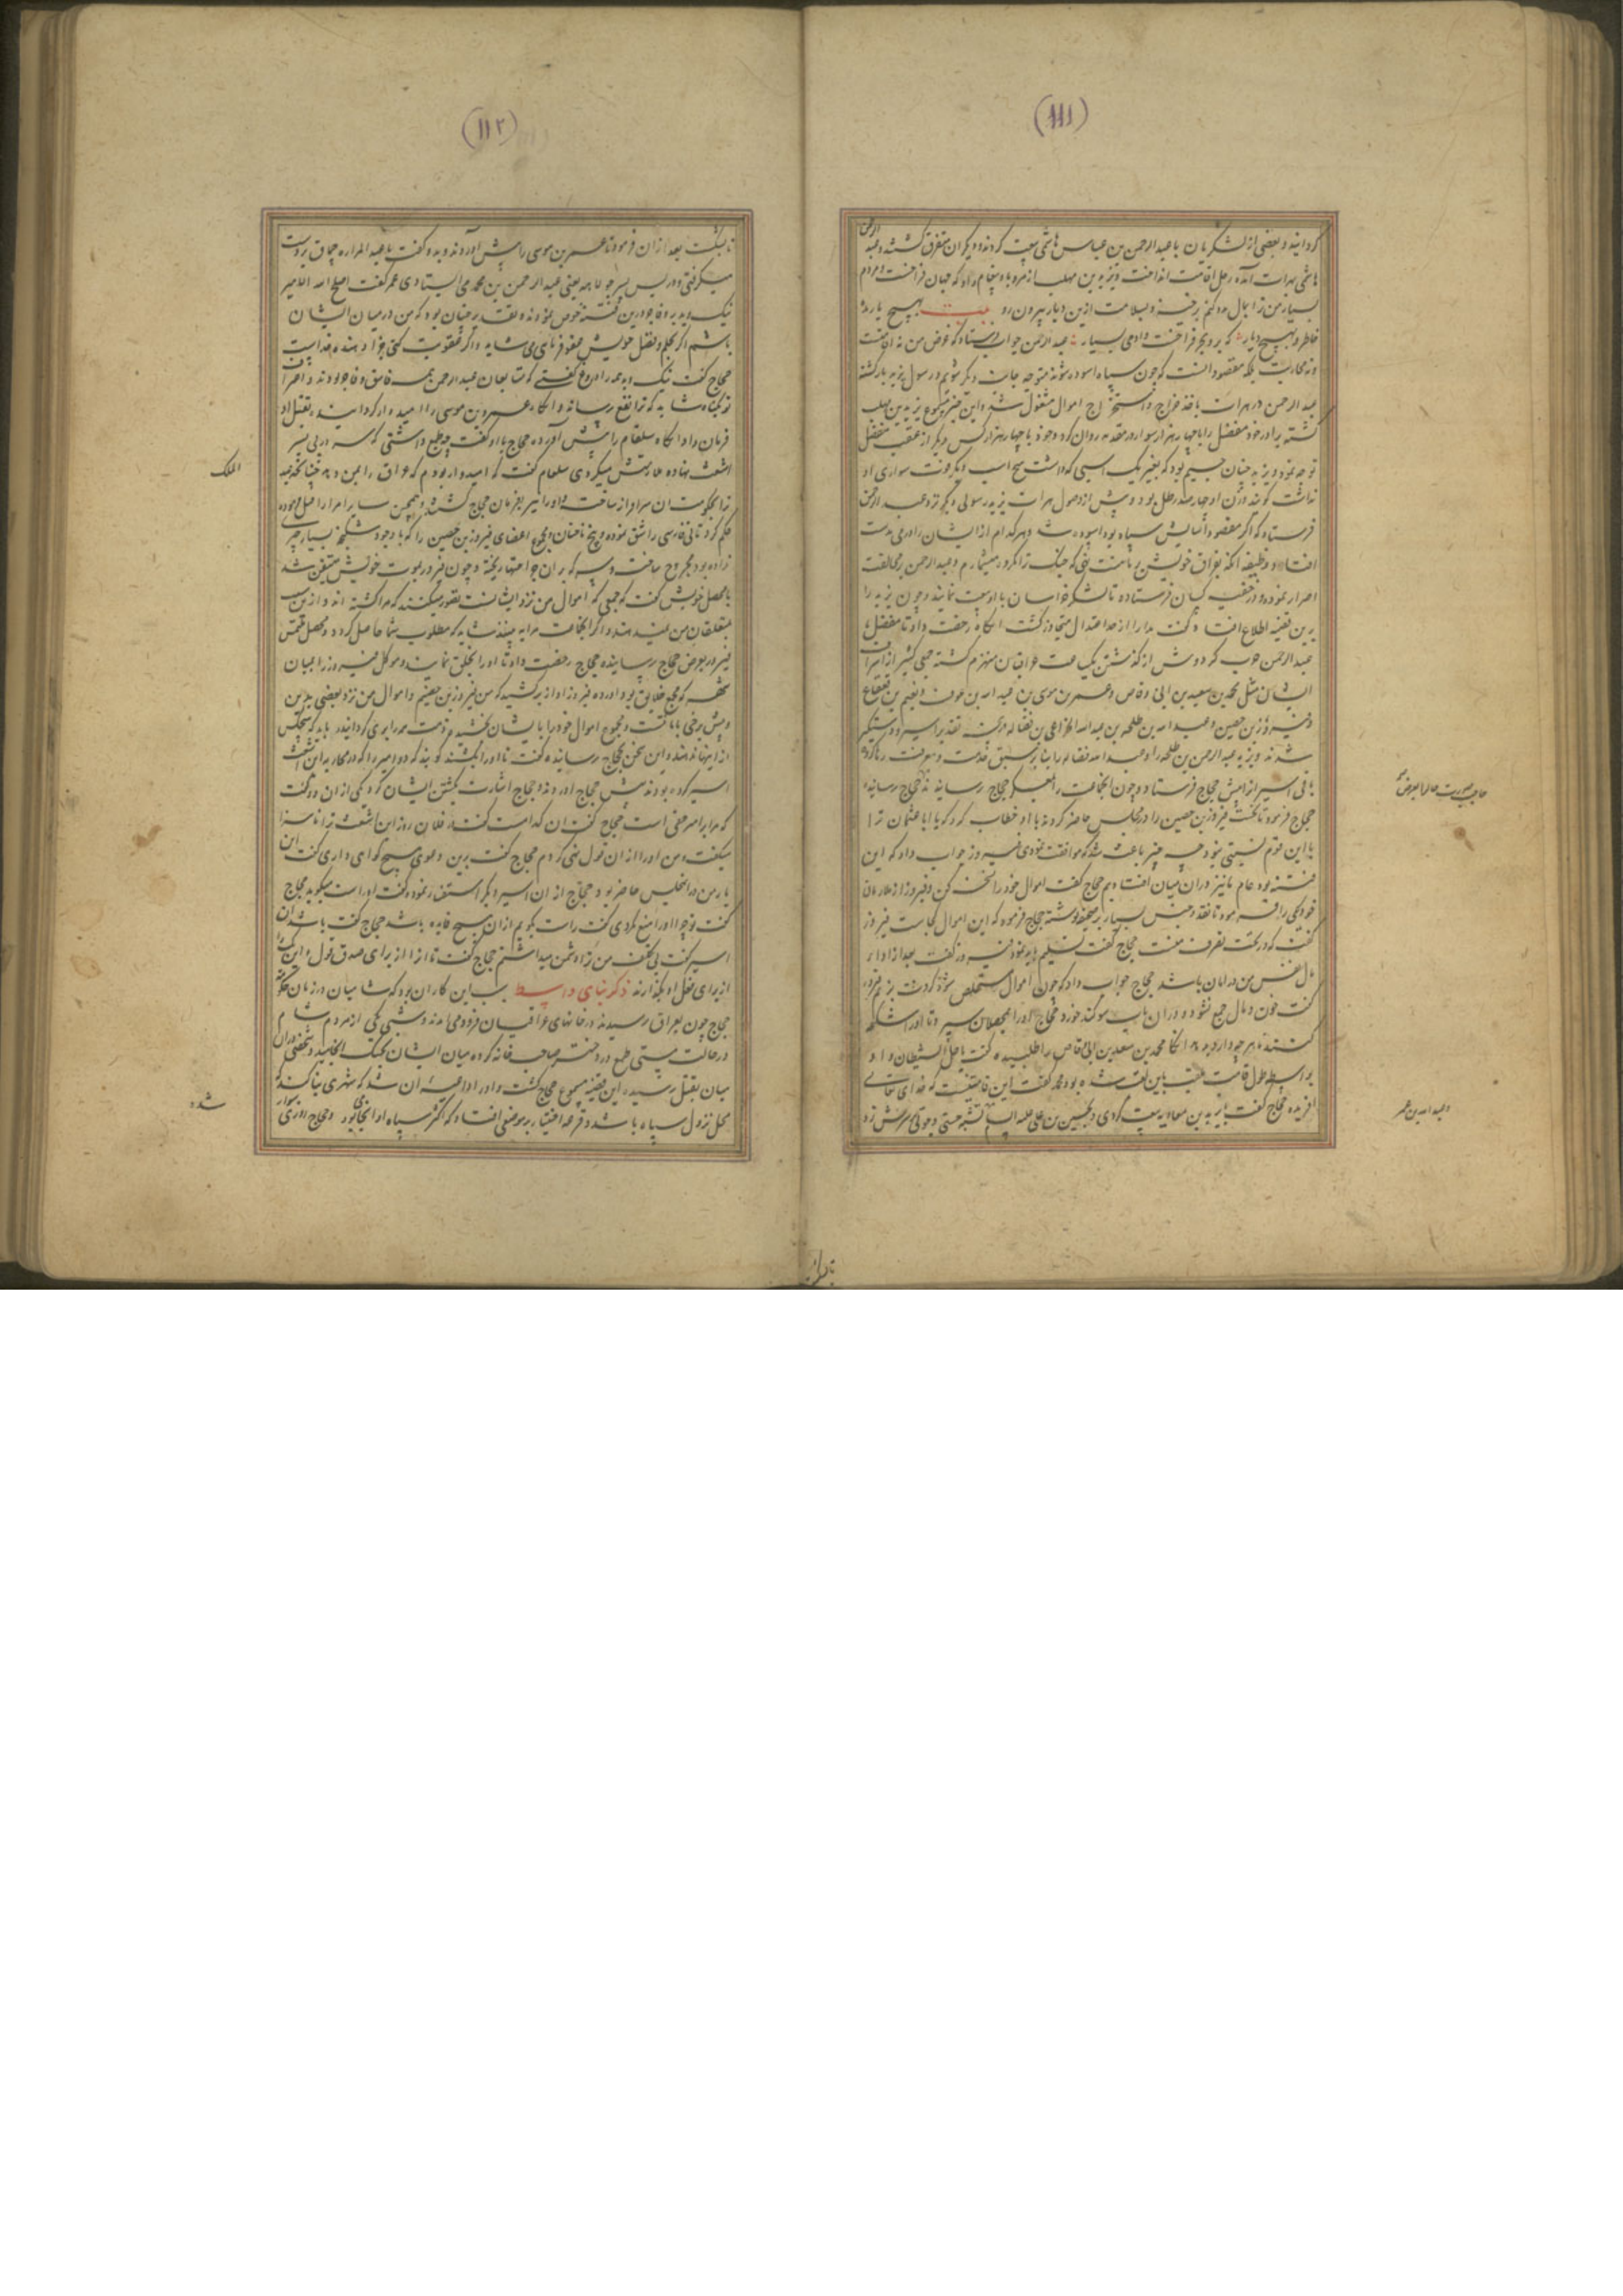 (١١١)
کردانید و بعضی از لشکریان با عبدالرحمن بن عباس هاشمی بیعت کردند و دیکران متفرق کشتند و عبدالرحمن
هاشمی بهرات آمده رحل اقامت انداخت و یزید بن مهلب از مرو باو پیغام داد که جهان فراخست و مردم
بسیار من ترا بمال مدد کنم برخیز و بسلامت ازین دیار بیرون رو بیت بهیچ یار مده
خاطر و بهیچ دیار که بر و بحر فراخست و ادمی بسیار عبدالرحمن جواب فرستاد که غرض من نه اقامت
و نه محاربت بلکه مقصود آنست که چون سپاه اسوده شوند متوجه جانب دیکر شویم و رسول یزید بازکشته
عبدالرحمن در هرات باخذ خراج و استخراج اموال مشغول شد و این خبر مسموع یزید بن مهلب
کشته برادر خود مفضل را با چهار هزار سوار در مقدمه روان کرد و خود با چهار هزار کس دیکر از عقب مفضل
توجه نمود و یزید چنان جسیم بود که بغیر یک اسبی که داشت هیچ اسب دیکر قوت سواری او
نداشت کویند وزن او چهارصد رطل بود و پیش از وصول هرات یزید رسولی دیکر نزد عبدالرحمن
فرستاد که اکر مقصود آسایش سپاه بود آسوده شد و هر کدام از ایشان را درمی بدست
افتاد وظیفه آنکه بفراق خویش بر ما منت نهی که جنک ترا مکروه میشمارم و عبدالرحمن بر مخالفت
اصرار نموده در خفیه کسان فرستاده تا لشکر خراسان با او بیعت نمایند و چون یزید را
برین قضیه اطلاع افتاد کفت مدارا از حد اعتدال متجاوز کشت انکاه رخصت داد تا مفضل با
عبدالرحمن حرب کرد و پیش از کذشتن یک ساعت عراقیان منهزم کشته جمعی کثیر از اشراف
ایشان مثل محمد بن سعد بن ابی وقاص و عمر بن موسی بن عبدالله بن عوف و نعیم بن قعقاع
و فیروز بن حصین و عبدالله بن طلحه بن عبدالله الخزاعی بن فضاله در قید تقدیر اسیر و دستکیر
شدند و یزید عبدالرحمن بن طلحه را و عبدالله فضاله را بنا بر سبق خدمت و معرفت رها کرده
باقی اسیران را پیش حجاج فرستاد و چون انجماعت را بمعسکر حجاج رسانیدند حجاج رسانید
حجاج فرمود تا نخست فیروز بن حصین را در مجلس حاضر کردند با او خطاب کرد که یا ابا عثمان ترا
با این قوم نسبتی نبود چه چیز باعث شد که موافقت نمودی فیروز جواب داد که این
فتنه بود عام ما نیز در ان میان افتادیم حجاج کفت اموال خود را نسخت کن و فیروز از ملازمان
خود یکی را فرمود تا نقد و جنس بسیار بر صحیفه نوشته حجاج فرمود که این اموال کجاست فیروز
کفت که در تحت تصرف منست حجاج کفت تسلیم باید نمود فیروز کفت بعد از اداء
مال نفس من در امان باشد حجاج جواب داد که چون اموال مستخلص شود کردنت بزنم فیروز
کفت خون و مال جمع نشود و در ان باب سوکند خورد حجاج او را بمحصلان سپرد تا او را شکنجه
کنند تا هر چه دارد بدهد انکاه محمد بن سعد بن ابی وقاص را طلبیده کفت یا ظل الشیطان و او
بواسطه طول قامت ملقب باین لقب شده بود محمد کفت این قامتیست که خدای تعالی
افریده حجاج کفت با یزید بن معاویه بیعت کردی و بحسین بن علی علیه السلام تشبه جستی و چوبی بر سرش زد
حاجب صورت حال را بعرض
و عبدالله بن عمر
(١١٢)
تا بشکست بعد ازان فرمود تا عمر بن موسی را پیش اوردند و بدو کفت یا عبد المراه چماق بر دوست
میکرفتی و در پس پسر جولاهه یعنی عبدالرحمن بن محمد می ایستادی عمر کفت اصلح الله الامیر
نیک و بد بر و فاجر درین فتنه خوض نمودند و تقدیر چنان بود که من در میان ایشان
باشم اکر بحلم و فضل خویش عفو فرمای می شاید و اکر عقوبت کنی جزا دهنده خداست
حجاج کفت نیک و بد همه را دروغ کفتی که متابعان عبدالرحمن همه فاسق و فاجر بودند و اعتراف
تو بکناه شاید که ترا نفع رساند و انکاه عمر بن موسی را امیدوار کردانید بقتل او
فرمان داد انکاه سلقام را پیش آورده حجاج با او کفت چه طمع داشتی که سر در پی پسر
اشعث نهاده متابعتش میکردی سلقام کفت که امیدوار بودم که عراق را بمن دهد چنانچه عبد
الملک
ترا بحکومت ان سرافراز ساخت و او را نیز بفرمان حجاج کشتند و همچنین سایر امرا را قتل فرموده
حکم کرد تا نی فارسی را شق نموده و پنج ناخنان و مجموع اعضای فیروز بن حصین را که با وجود شکنجه بسیار چیزی
نداده بود مجروح ساخت و سرکه بر ان جراحتها ریخته و چون فیروز بموت خویش متیقن شد
بامحصل خویش کفت که جمعی که اموال من نزد ایشانست تصور میکنند که مرا کشته اند و ازین سبب
بمتعلقان من نمیدهند و اکر انجماعت مرا به بینند شاید که مطلوب شما حاصل کردد و محصل ملتمس
فیروز بعرض حجاج رسانیده حجاج رخصت داد تا او را بخلق نمایند و موکل فیروز را بمیان
شهر که مجمع خلایق بود اورده فیروز آواز برکشید که من فیروز بن حصینم و اموال من نزد بعضی مردمست
و پیش برخی باماانت و مجموع اموال خود را بایشان بخشیدم و ذمت همه را بری کردانیدم باید که هیچکس
از اینها ندهند و این سخن بحجاج رسانیده کفت تا او را بکشند کویند که دو اسیر را که در محاربه ابن اشعث
اسیر کرده بودند پیش حجاج اوردند و حجاج اشارت بکشتن ایشان کرد یکی ازان دو کفت
که مرا بر امیر حقی است حجاج کفت ان کدام است کفت در فلان روز ابن اشعث ترا ناسزا
میکفت و من او را ازان قول نهی کردم حجاج کفت برین دعوی هیچ کواه داری کفت این
یار من در انمجلس حاضر بود حجاج از ان اسیر دیکر استفسار نموده کفت او راست میکوید حجاج
کفت تو چرا او را منع نکردی کفت راست بکویم ازان هیچ فایده باشد حجاج کفت باشد ان
اسیر کفت بی تکلف من ترا دشمن میداشتم حجاج کفت تا او را از برای صدق قول و این یک را
از برای فعل او بکذارند ذکر بنای واسط سبب این کار ان بود که شامیان در زمان حکومت
حجاج چون بعراق رسیدند در خانهای عراقیان فرود می امدند و شبی یکی از مردم شام
در حالت مستی طمع در دختر صاحب خانه کرده میان ایشان بجنک انجامید و شخصی در ان
میان بقتل رسید و این قضیه مسموع حجاج کشت و او را داعیه ان شد که شهری بنا کند که
محل نزول سپاه باشد و قرعه اختیار بر موضعی افتاد که اکثر سپاه او انجا بود و حجاج
شده